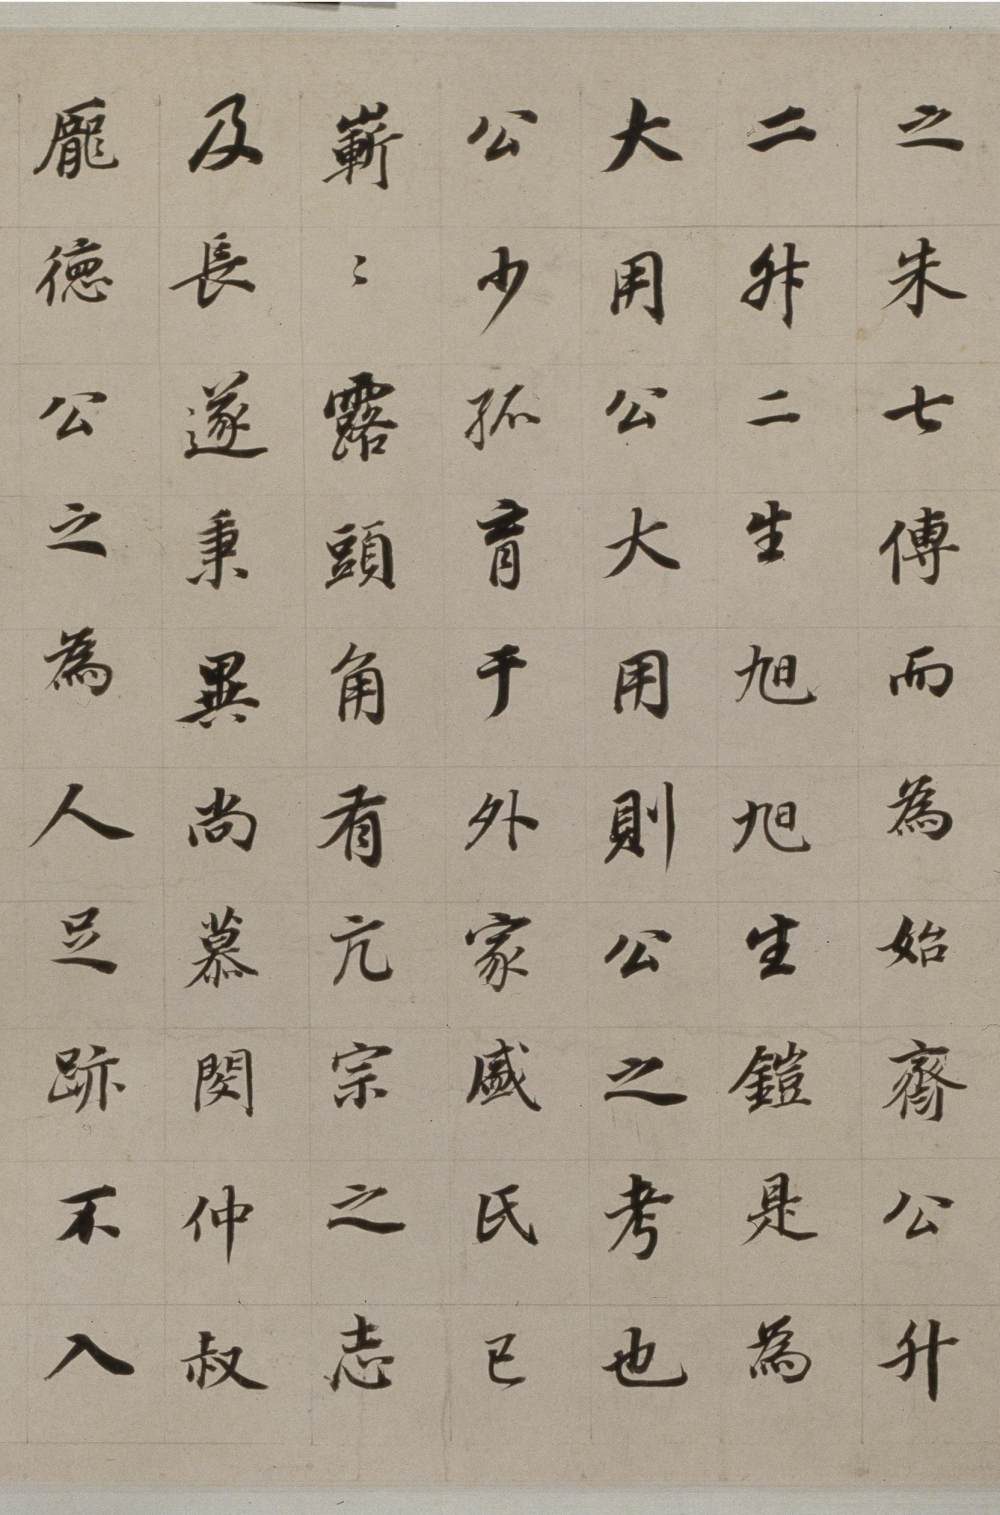 之朱七傳而為始齊公升
二升二生旭旭生鎧是為
大用公大大用則公之考也
公少孤育于外家戚氏已
嶄〻露頭角有亢宗之志
及長遂秉異尚慕閔仲叔
龐德公之為人足跡不入